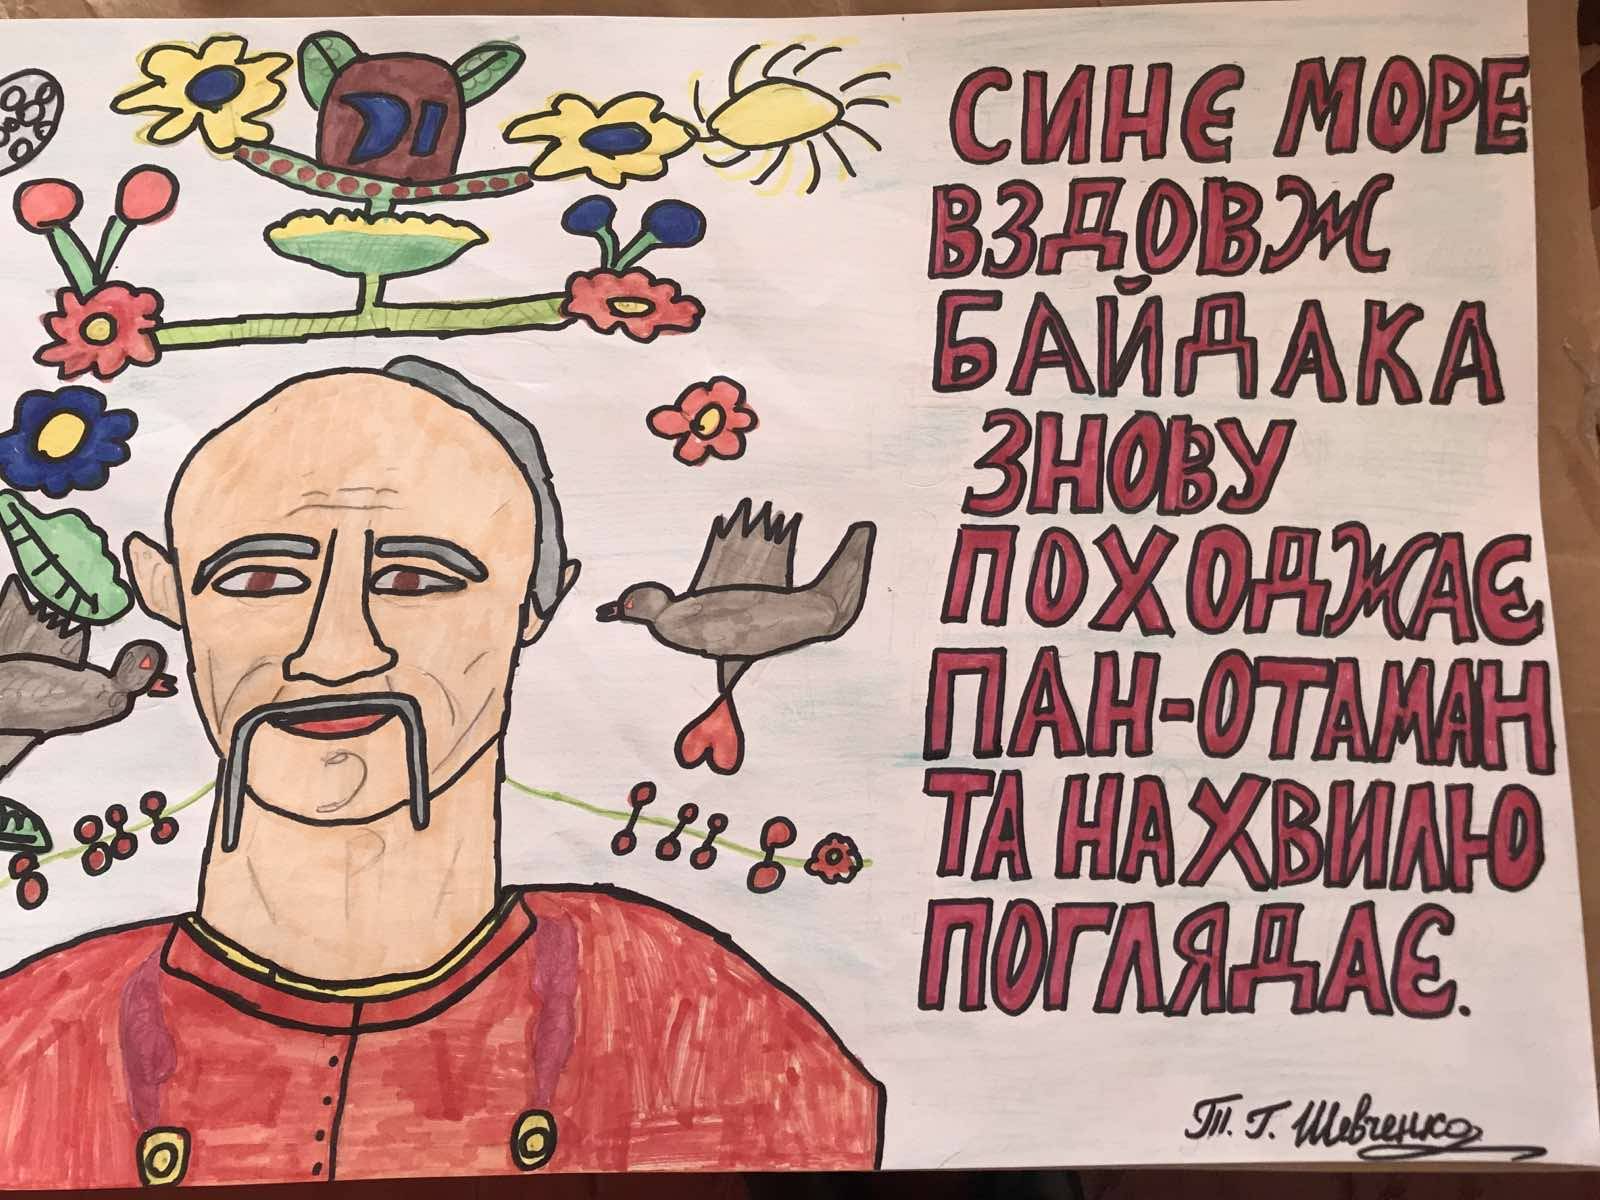 СИНЄ МОРЕ
ВЗДОВЖ
БАЙДАКА
ЗНОВУ
ПОХОДЖАЄ
ПАН-ОТАМАН
ТА НА ХВИЛЮ
ПОГЛЯДАЄ.
Т. Г. Шевченко